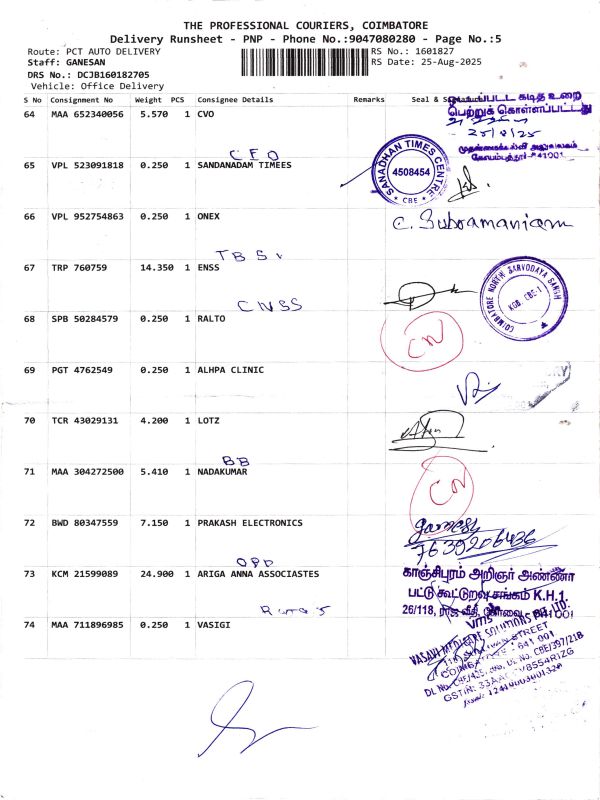 THE PROFESSIONAL COURIERS, COIMBATORE
Delivery Runsheet - PNP - Phone No.:9047080280 - Page No.:5
Route: PCT AUTO DELIVERY
RS No.: 1601827
Staff: GANESAN
RS Date: 25-Aug-2025
DRS No.: DCJB160182705
Vehicle: Office Delivery
S No Consignment No Weight PCS Consignee Details Remarks Seal &
64 MAA 652340056 5.570 1 CVO
பெற்றுக் கொள்ளப்பட்டது
25/8/25
CEO
65 VPL 523091818 0.250 1 SANDANADAM TIMEES
SANADHAN TIMES CENTRE
4508454
CBE
66 VPL 952754863 0.250 1 ONEX
C. Subramaniam
TBS
67 TRP 760759 14.350 1 ENSS
COIMBATORE NORTH SARVODAYA SANGH
KGB. CBE-1
CNSS
68 SPB 50284579 0.250 1 RALTO
CN
69 PGT 4762549 0.250 1 ALHPA CLINIC
70 TCR 43029131 4.200 1 LOTZ
BB
71 MAA 304272500 5.410 1 NADAKUMAR
CN
72 BWD 80347559 7.150 1 PRAKASH ELECTRONICS
7639206436
OPD
73 KCM 21599089 24.900 1 ARIGA ANNA ASSOCIASTES
காஞ்சிபுரம் அறிஞர் அண்ணா
பட்டு கூட்டுறவு சங்கம் K.H.1.
26/118,
74 MAA 711896985 0.250 1 VASIGI